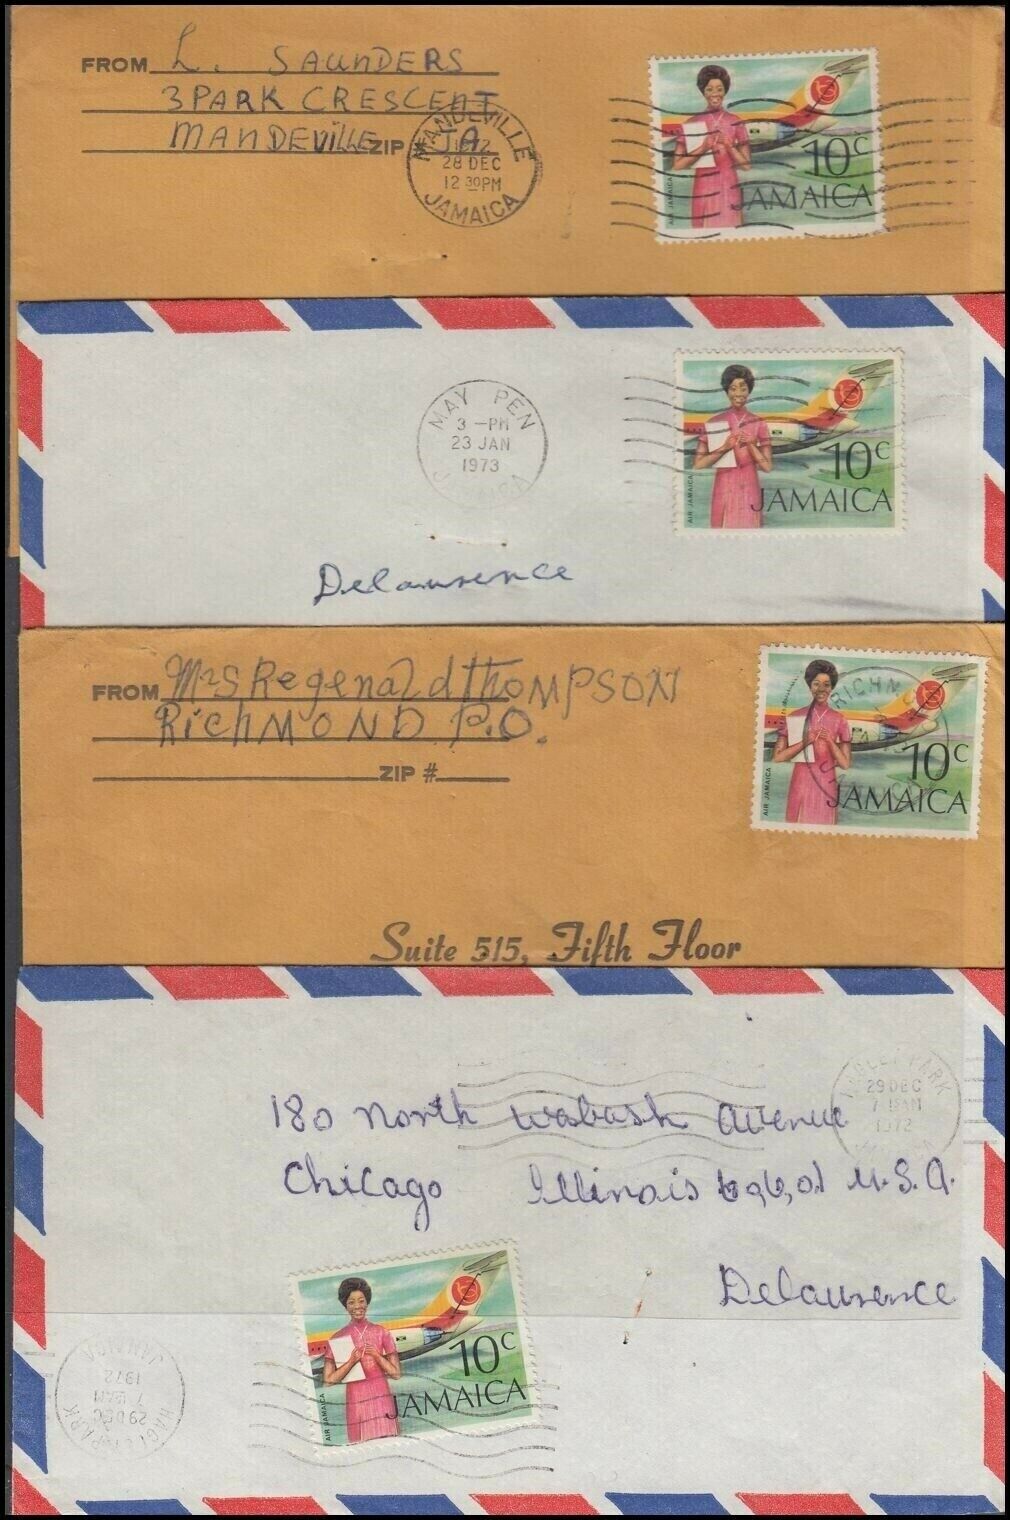 FROM L. SAUNDERS
3 PARK CRESCENT
MANDEVILLE ZIP # JA.
MANDEVILLE
28 DEC
12 30PM
JAMAICA
10c
JAMAICA
AIR JAMAICA
MAY PEN
3 -PM
23 JAN
1973
JAMAICA
10c
JAMAICA
AIR JAMAICA
Delaurence
FROM Mrs Regenald THOMPSON
RICHMOND P.O.
ZIP #
RICHM
JAMAICA
10c
JAMAICA
AIR JAMAICA
Suite 515, Fifth Floor
HAGLEY PARK
29 DEC
7 15AM
1972
JAMAICA
180 North Wabash Avenue
Chicago Illinois 60,6,01 U.S.A.
Delaurence
10c
JAMAICA
AIR JAMAICA
HAGLEY PARK
29 DEC
7 15AM
1972
JAMAICA